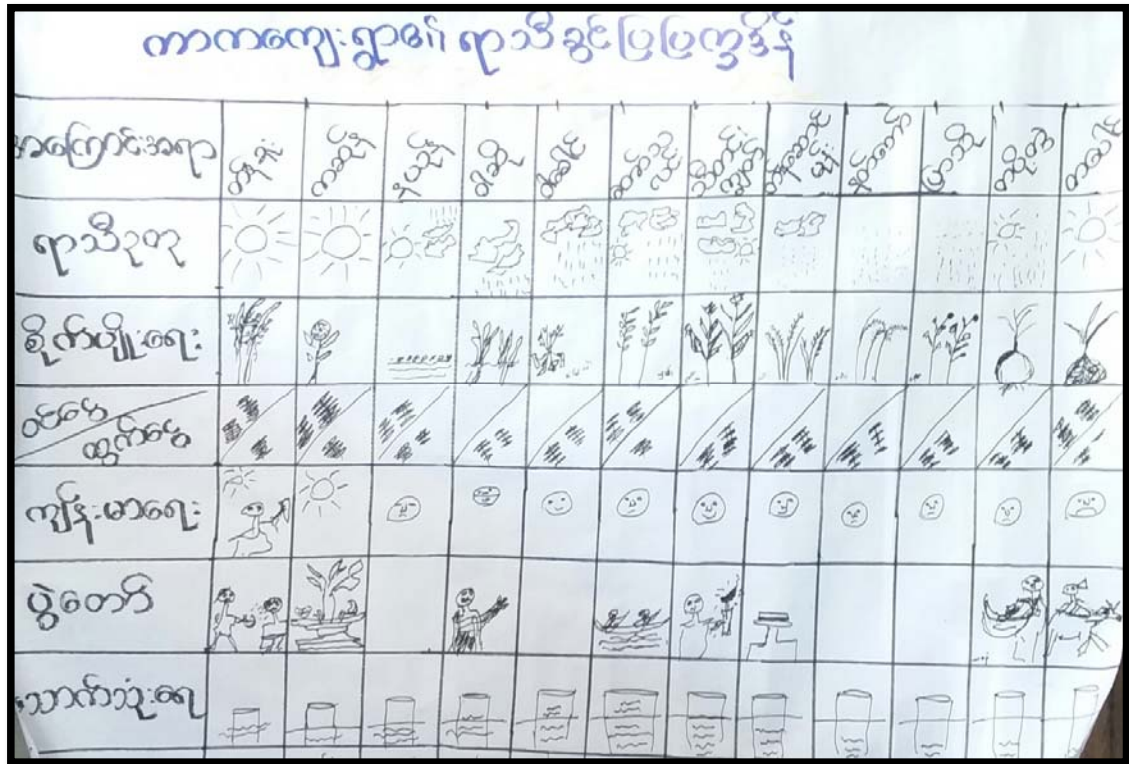 ကာကကျေးရွာ၏ ရာသီခွင်ပြပြက္ခဒိန်
အကြောင်းအရာ တန်ခူး ကဆုန် နယုန် ဝါဆို ဝါခေါင် တော်သလင်း သီတင်းကျွတ် တန်ဆောင်မုန်း နတ်တော် ပြာသို တပို့တွဲ တပေါင်း
ရာသီဥတု
စိုက်ပျိုးရေး
ဝင်ငွေ
ထွက်ငွေ
ကျန်းမာရေး
ပွဲတော်
သောက်သုံးရေ